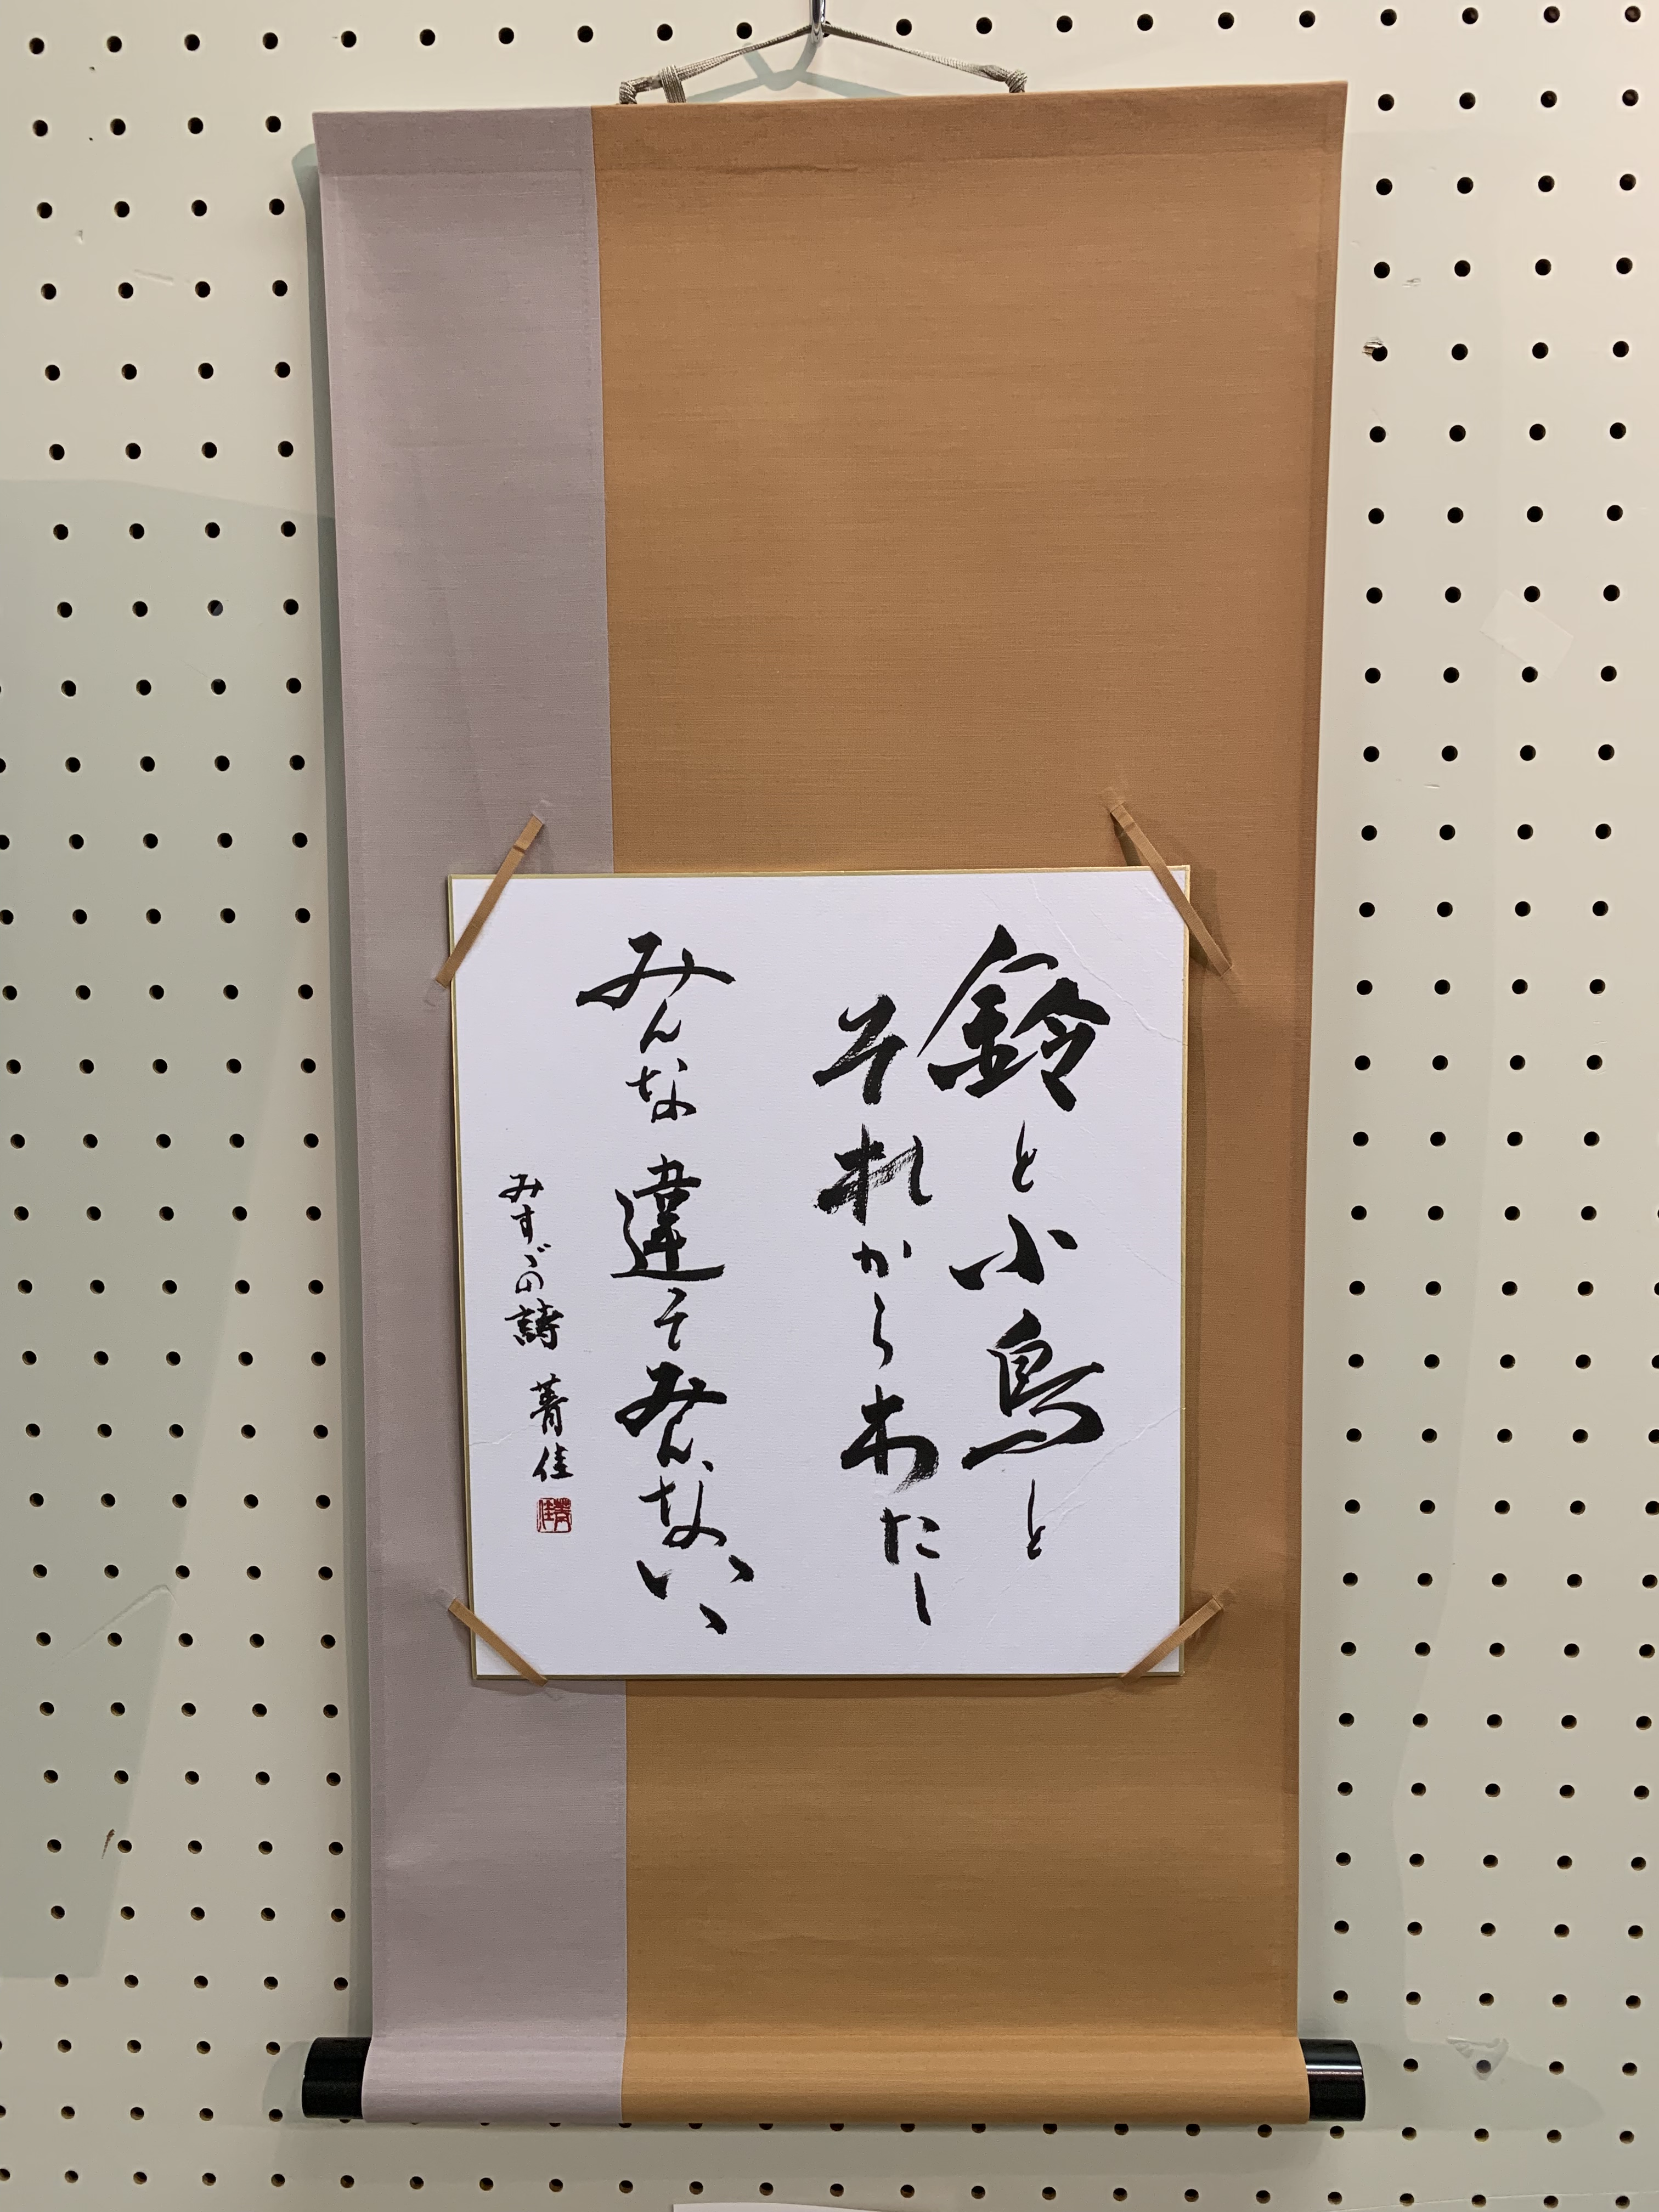 鈴と小鳥と
それからわたし
みんな違てみんないゝ
みすゞの詩 菁佳
菁佳